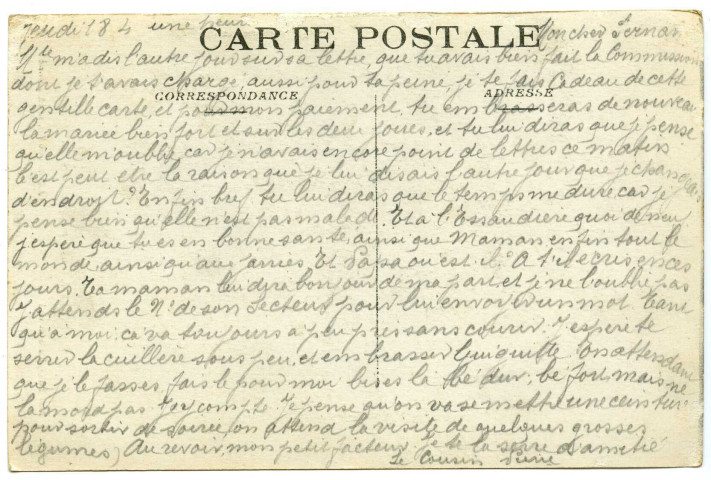 Jeudi 18 4 une heur
CARTE POSTALE
Mon cher Fernan
M'a dis l'autre jour sur sa lettre, que tu avais bien fait la Commission
dont je t'avais chargé, aussi pour ta peine, je te fais Cadeau de cette
CORRESPONDANCE
ADRESSE
gentille carte, et pour mon paiement, tu embrasseras de nouveau
la mariée bien fort et sur les deux joues, et tu lui diras que je pense
qu'elle m'oublie, car je n'avais encore point de lettres ce matin
C'est peut etre la raison que je lui disais l'autre jour que je changeais
d'endroit? Enfin bref tu lui diras que le temps me dure car je
pense bien qu'elle n'est pas malade. Et a l'Essaudiere quoi de neu
j'espere que tu es en bonne santé, ainsi que Maman enfin tout le
monde, ainsi qu'aux Et Papa ou est-il? A t'il ecris en ces
jours. Ta maman lui dira bonjour de ma part, et je ne l'oublie pas
J'attends le N° de son Secteur pour lui envoi d'un mot. Tant
qu'a moi ca va toujours a peu pres sans courir. J'espere te
serrer la cuillère sous peu, et embrasser Guiguitte en attendant
que je le fasses, fais le pour moi bises la bé dur, bé fort, mais ne
la mord pas. J'ey compte. Je pense qu'on va se mettre une ceinture
pour sortir de soirée, on attend la visite de quelques grosses
légumes, Au revoir, mon petit facteur. Je te la serre d'amitié
Le Cousin Pierre